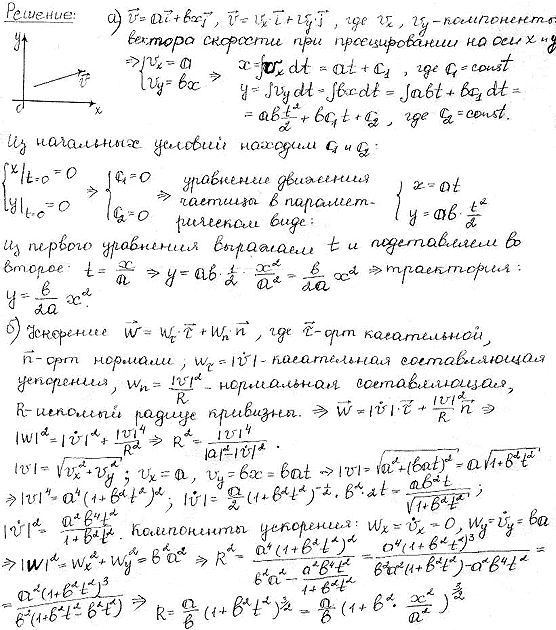 Решение:
y
x
0
v⃗
а) v⃗ = ai⃗ + bxj⃗, v⃗ = vₓ·i⃗ + vᵧ·j⃗, где vₓ, vᵧ - компоненты
вектора скорости при проецировании на оси x и y
⇒ {vₓ = a, vᵧ = bx ⇒ x = ∫vₓdt = at + C₁, где C₁ = const
y = ∫vᵧdt = ∫bxdt = ∫abtdt + bC₁dt =
= ab t²/2 + bC₁t + C₂, где C₂ = const.
Из начальных условий находим C₁ и C₂:
{x|t=0 = 0, y|t=0 = 0 ⇒ {C₁ = 0, C₂ = 0 ⇒ уравнение движения частицы в параметрическом виде: {x = at, y = ab·t²/2
Из первого уравнения выражаем t и подставляем во
второе: t = x/a ⇒ y = ab·1/2·x²/a² = b/2a x² ⇒ траектория:
y = b/2a x².
б) Ускорение w⃗ = wτ·τ⃗ + wₙ·n⃗, где τ⃗ - орт касательной,
n⃗ - орт нормали; wτ = |v̇| - касательная составляющая
ускорения, wₙ = |v|²/R - нормальная составляющая,
R - искомый радиус кривизны. ⇒ w⃗ = |v̇|·τ⃗ + |v|²/R n⃗ ⇒
|w|² = |v̇|² + |v|⁴/R² ⇒ R² = |v|⁴/(|a|² - |v̇|²).
|v| = √(vₓ² + vᵧ²); vₓ = a, vᵧ = bx = bat ⇒ |v| = √(a² + (bat)²) = a√(1 + b²t²)
⇒ |v|⁴ = a⁴(1 + b²t²)²; |v̇| = a/2 (1 + b²t²)^(-1/2)·b²·2t = ab²t/√(1 + b²t²);
|v̇|² = a²b⁴t²/(1 + b²t²). Компоненты ускорения: wₓ = v̇ₓ = 0, wᵧ = v̇ᵧ = ba
⇒ |w|² = wₓ² + wᵧ² = b²a² ⇒ R² = a⁴(1 + b²t²)²/(b²a² - a²b⁴t²/(1 + b²t²)) = a⁴(1 + b²t²)³/(b²a²(1 + b²t²) - a²b⁴t²) =
= a²(1 + b²t²)³/(b²(1 + b²t² - b²t²)) ⇒ R = a/b (1 + b²t²)^(3/2) = a/b (1 + b²·x²/a²)^(3/2)